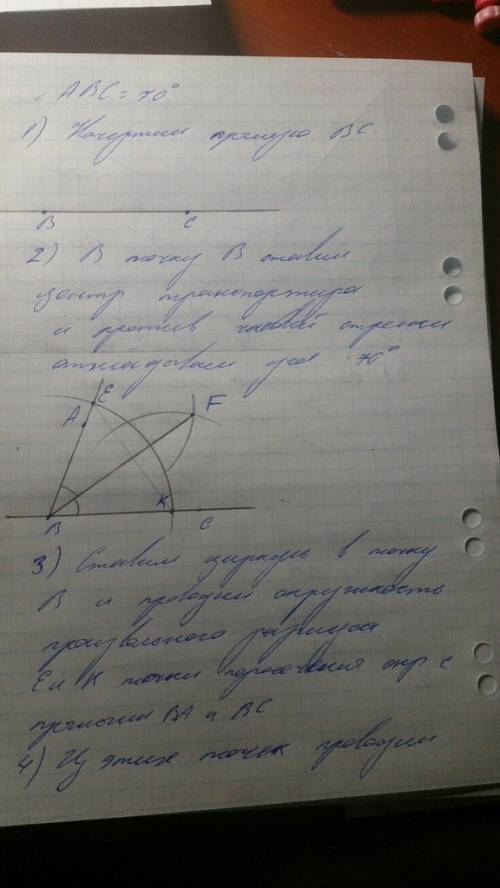 ABC = 70°
1) Начертим прямую BC
B C
2) В точку B ставим
центр транспортира
и против часовой стрелки
откладываем угол 70°
E
A F
B K C
3) Ставим циркуль в точку
B и проводим окружность
произвольного радиуса
E и K точки пересечения окр. с
прямыми BA и BC
4) Из этих точек проводим